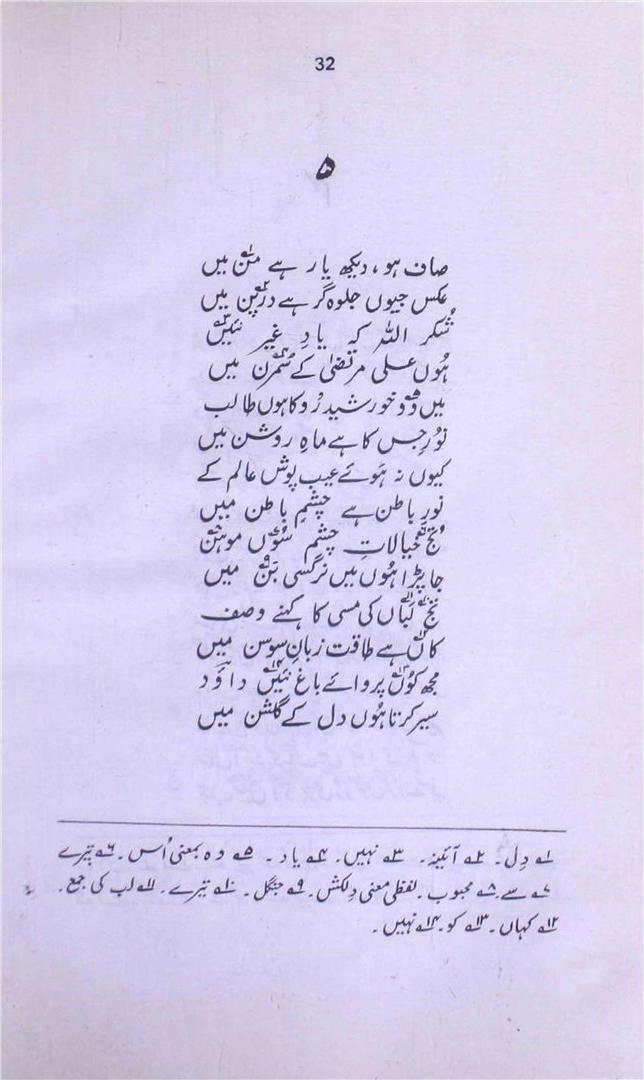 32
۵
صاف ہو، دیکھ یار ہے من۱ میں
عکس جیوں جلوہ گر ہے درپن۲ میں
شکر اللہ کہ یادِ غیر نئیں۳
ہوں علی مرتضیٰ کے سُمرن۴ میں
میں وو۵ خورشید رُو کا ہوں طالب
نورِ جس کا ہے ماہِ روشن میں
کیوں نہ ہوئے عیب پوش عالم کے
نورِ باطن ہے چشمِ باطن میں
تجھ۶ خیالاتِ چشم سوں۷ موہن۸
جا پڑا ہوں میں نرگسی بَن۹ میں
تجھ۱۰ لباں۱۱ کی مسی کا کہنے وصف
کاں۱۲ ہے طاقت زبانِ سوسن میں
مجھ کوں۱۳ پروائے باغ نئیں۱۴ داؤد
سیر کرتا ہوں دل کے گلشن میں
۱؎ دِل۔ ۲؎ آئینہ۔ ۳؎ نہیں۔ ۴؎ یاد۔ ۵؎ وہ بمعنی اُس۔ ۶؎ تیرے
۷؎ سے۔ ۸؎ محبوب۔ لفظی معنی دِلکش۔ ۹؎ جنگل۔ ۱۰؎ تیرے۔ ۱۱؎ لب کی جمع۔
۱۲؎ کہاں۔ ۱۳؎ کو۔ ۱۴؎ نہیں۔